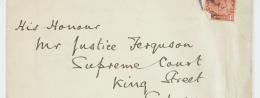 His Honour
Mr Justice Ferguson
Supreme Court
King Street